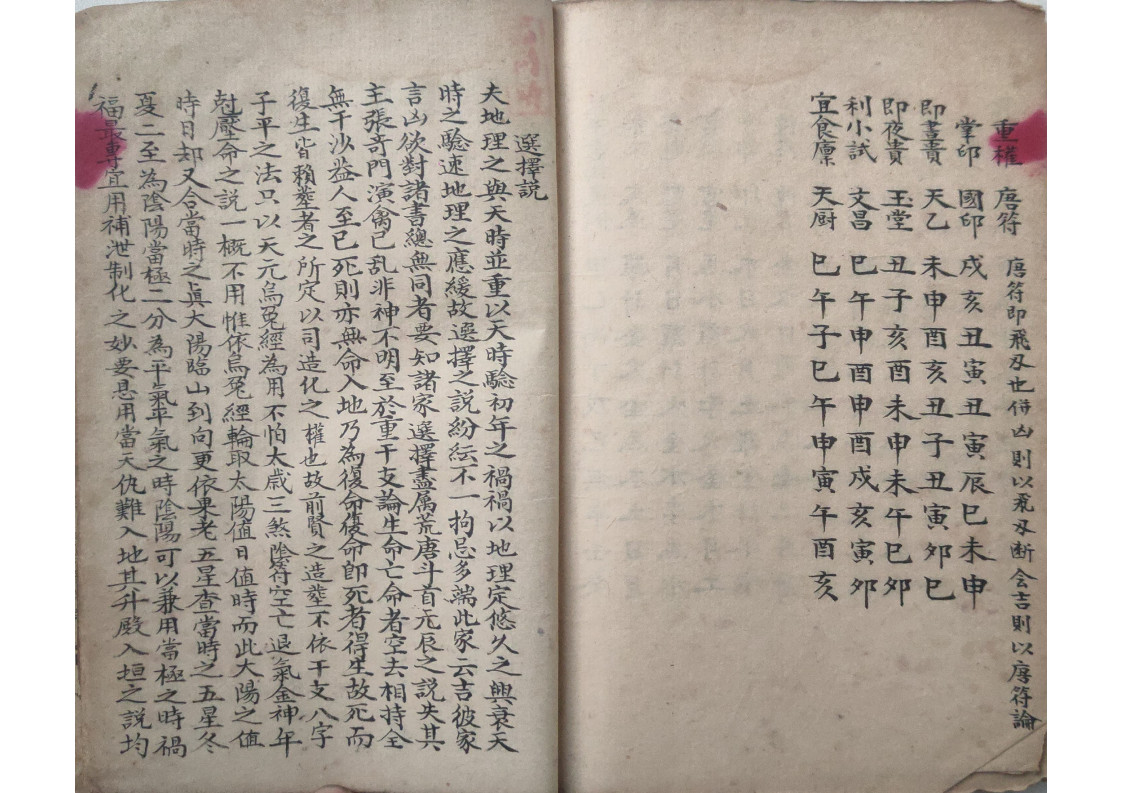 唐符即飛刃也併凶則以飛刃断会吉則以唐符論
重權 唐符
掌印 國印 戌亥丑寅丑寅辰巳未申
即晝貴 天乙 未申酉亥丑子丑寅夘巳
即夜貴 玉堂 丑子亥酉未申未午巳夘
利小試 文昌 巳午申酉申酉戌亥寅夘
宜食廩 天厨 巳午子巳午申寅午酉亥
選擇説
夫地理之與天時並重以天時驗初年之禍禍以地理定悠久之興衰天
時之驗速地理之應緩故選擇之説紛紜不一拘忌多端此家云吉彼家
言凶欲對諸書總無同者要知諸家選擇盡属荒唐斗首元辰之説失其
主張奇門演禽己乱非神不明至於重干支論生命亡命者空去相持全
無干渉益人至已死則亦無命入地乃為復命復命即死者得生故死而
復生皆賴塟者之所定以司造化之權也故前賢之造塟不依干支八字
子平之法只以天元烏兔經為用不怕大歲三煞陰符空亡退氣金神年
尅壓命之説一概不用惟依烏兔經輪取太陽值日值時而此大陽之值
時日却又合當時之眞大陽臨山到向更依果老五星查當時之五星冬
夏二至為陰陽當極二分為平氣平氣之時陰陽可以兼用當極之時禍
福最專宜用補泄制化之妙要恩用當天仇難入地其升殿入垣之説均